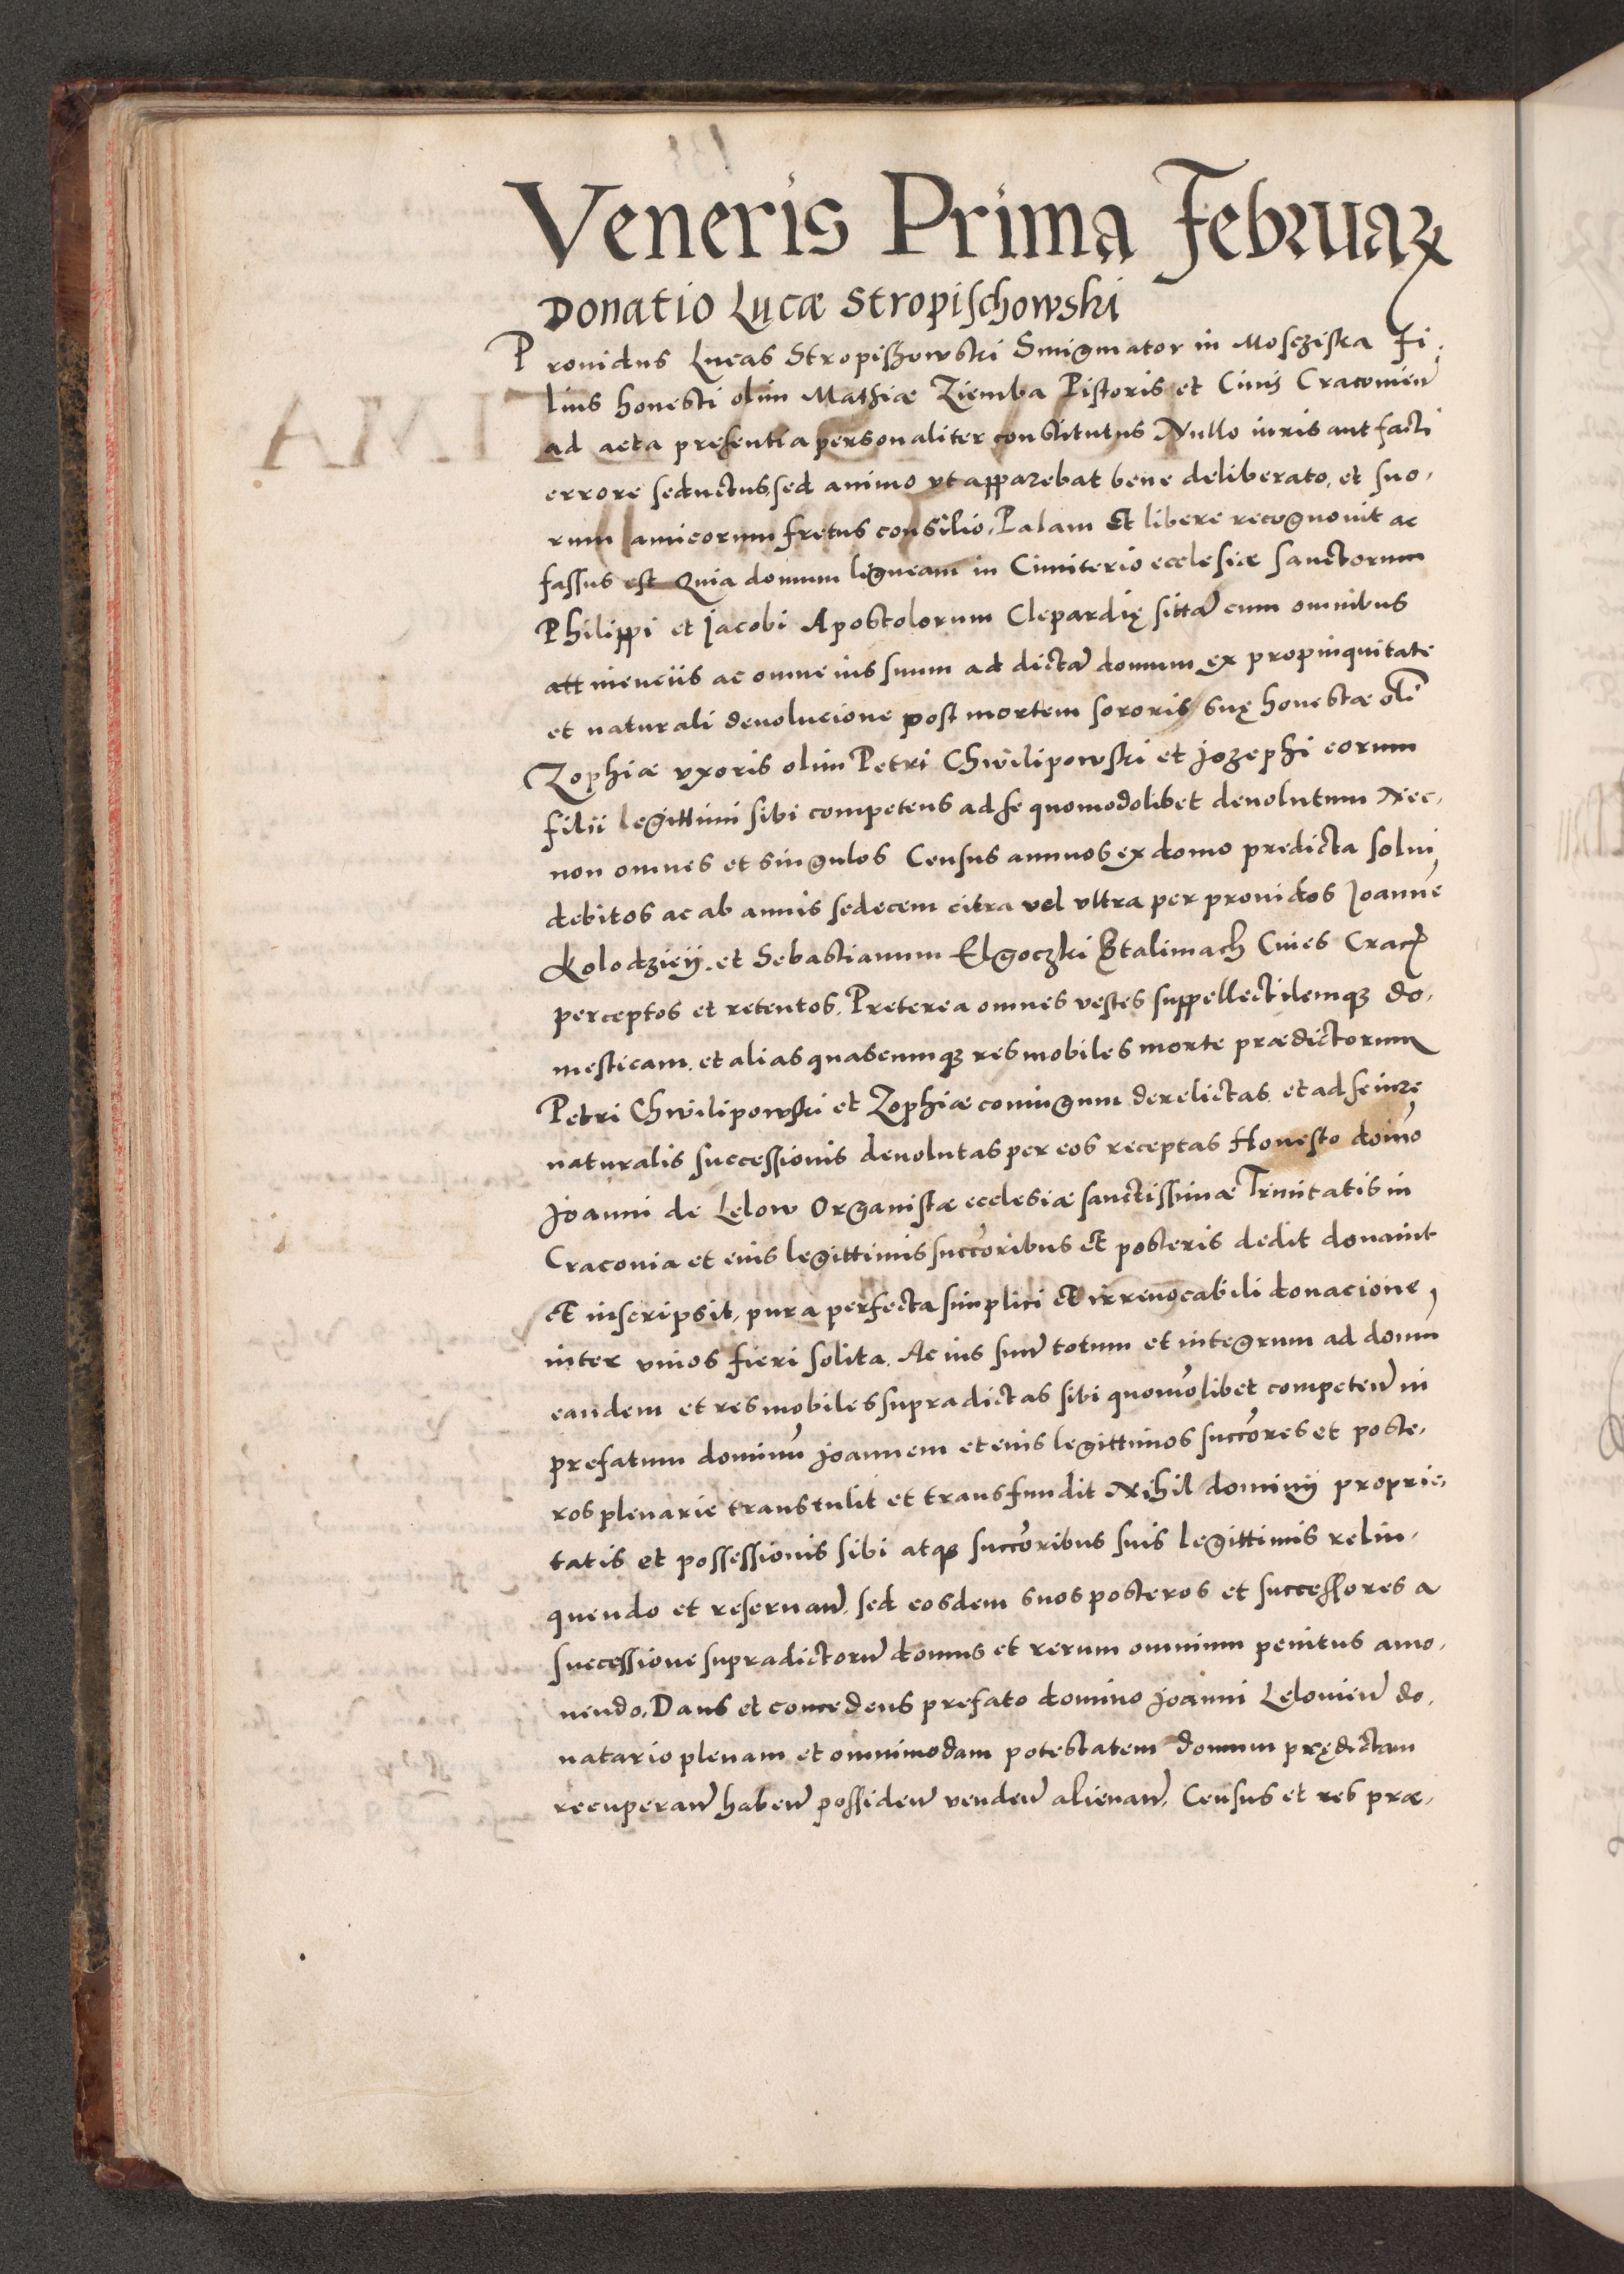 Veneris Prima Februarꝝ
Donatio Lucæ Stropischowski
Prouidus Lucas Stropiszowski Smigmator in Moscziska Fi,
lius honesti olim Mathiæ Ziemba Pistoris et Ciuis Cracouien̄
ad acta presentia personaliter constitutus Nullo iuris aut facti
errore seductus, sed animo vt apparebat bene deliberato, et suo,
rum amicorum fretus consilio, Palam Et libere recognouit ac
fassus est Quia domum ligneam in Cimiterio ecclesiæ Sanctorum
Philippi et Jacobi Apostolorum Clepardię sittā cum omnibus
attinenciis ac omne ius suum ad dictā domum ex propinquitate
et naturali deuolucione post mortem sororis suę honestæ oli
Zophiæ vxoris olim Petri Chwilipowski et Jozephi eorum
filii legittimi sibi competens ad se quomodolibet deuolutum Nec,
non omnes et singulos Census annuos ex domo predicta solui
debitos ac ab annis sedecem citra vel vltra per prouidos Joannē
Kolodzieij. et Sebastianum Elgoczki Stalimach Ciues Crac̄
perceptos et retentos. Preterea omnes vestes suppellectilemqꝫ do,
mesticam. et alias quascumqꝫ res mobiles morte prædictorum
Petri Chwilipowski et Zophiæ coniugum derelictas. et ad se iure
naturalis successionis deuolutas per eos receptas Honesto domō
Joanni de Lelow Organistæ ecclesiæ sanctissimæ Trinitatis in
Craconia et eius legittimis succoribus Et posteris dedit donauit
Et inscripsit, pura perfecta simplici Et irreuocabili donacione,
inter viuos fieri solita. Ac ius suū totum et integrum ad domū
eandem et res mobiles supradictas sibi quomōlibet competen̄ in
prefatum dominū Joannem et eius legittimos succores et poste,
ros plenarie transtulit et transfundit Nihil dominij proprie,
tatis et possessionis sibi atqꝫ succoribus suis legittimis relin,
quendo et reseruan̄. sed eosdem suos posteros et successores a
successione supradictorū domus et rerum omnium penitus amo,
uendo. Dans et concedens prefato domino Joanni Lelouien̄ do,
natario plenam et omnimodam potestatem domum prędictam
recuperan̄ haben̄ possiden̄ venden̄ alienan̄. Census et res præ,